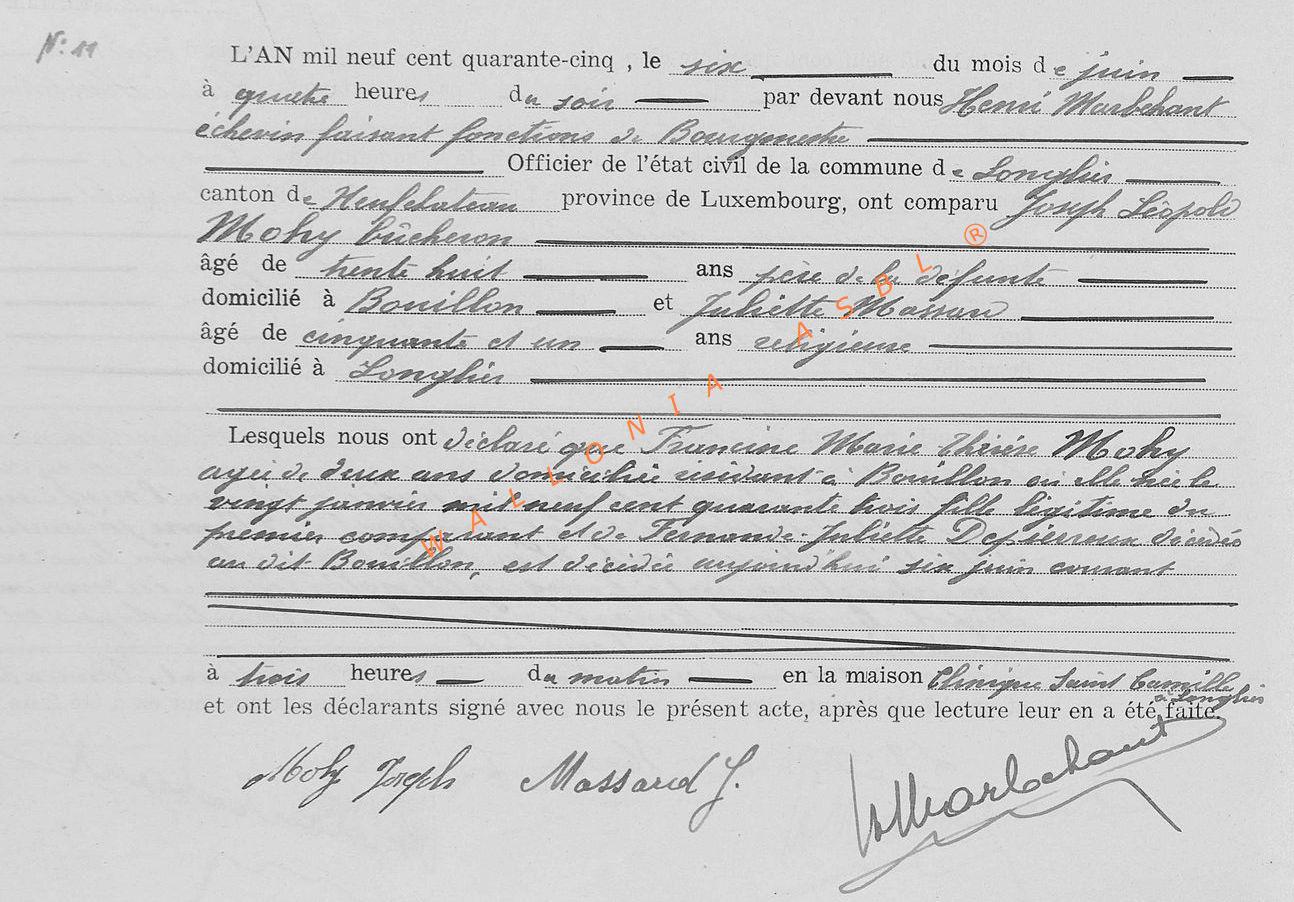 N: 11
L'AN mil neuf cent quarante-cinq , le six du mois de juin
à quatre heures du soir par devant nous Henri Marbehant
échevin faisant fonctions de Bourgmestre
Officier de l'état civil de la commune de Longlier
canton de Neufchateau province de Luxembourg, ont comparu Joseph Léopold
Mohy bûcheron
âgé de trente huit ans père de la défunte
domicilié à Bouillon et Juliette Massard
âgé de cinquante et un ans religieuse
domicilié à Longlier
Lesquels nous ont déclaré que Francine Marie Thérèse Mohy
agée de deux ans domiciliée résidant à Bouillon où elle née le
vingt janvier mil neuf cent quarante trois fille légitime du
premier comparant et de Fernande-Juliette Depierreux décédée
au dit Bouillon, est décédée aujourd'hui six juin courant
à trois heures du matin en la maison Clinique Saint Camille
à Longlier
et ont les déclarants signé avec nous le présent acte, après que lecture leur en a été faite.
Mohy Joseph Massard J. H Marbehant
WALLONIA ASBL ®